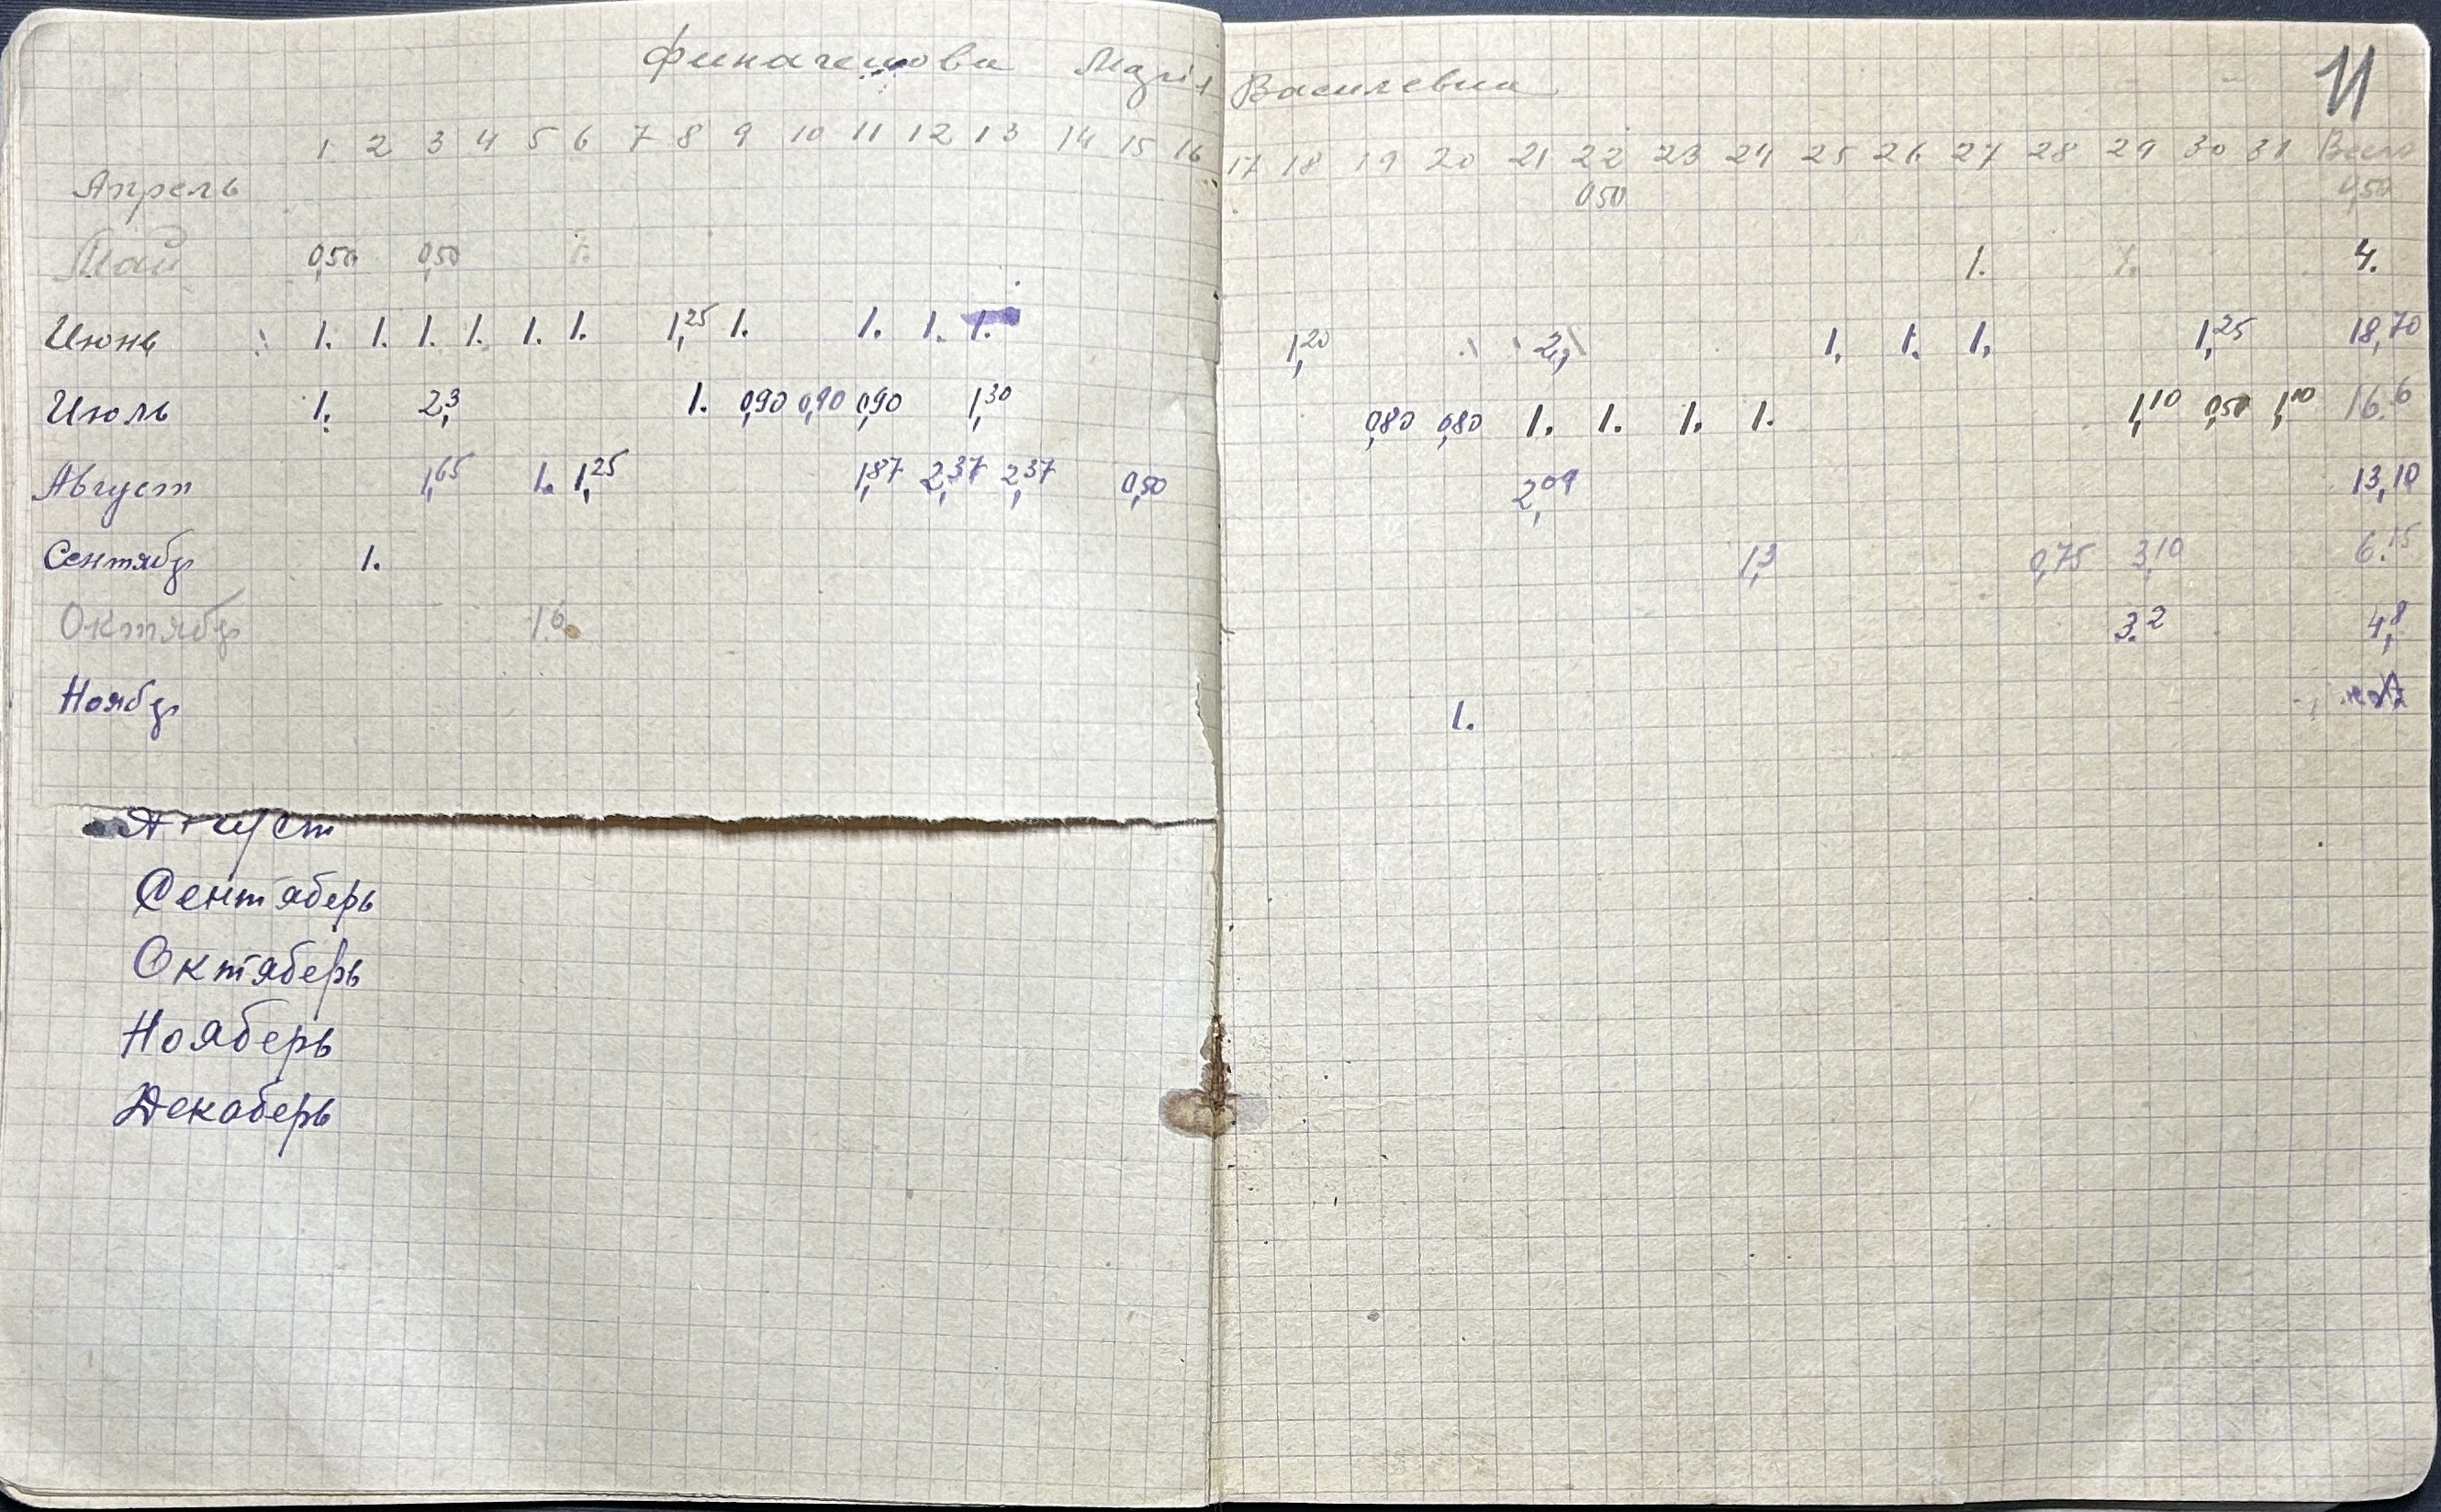 Василевна 11
1 2 3 4 5 6 7 8 9 10 11 12 13 14 15 16 17 18 19 20 21 22 23 24 25 26 27 28 29 30 31 Всего
Апрель 0,50 0,50
Май 0,50 0,50 1. 1. 1. 4.
Июнь 1. 1. 1. 1. 1. 1. 1,25 1. 1. 1. 1. 1,20 1, 1. 1, 1,25 18,70
Июль 1. 2,3 1. 0,90 0,90 0,90 1,30 0,80 0,80 1. 1. 1. 1. 1,10 0,50 1,10 16.6
Август 1,65 1. 1,25 1,87 2,37 2,37 0,50 2,09 13,10
Сентябр 1. 1,3 0,75 3,10 6.15
Октябр 1.6 3.2 4,8
Ноябр 1.
Август
Сентяберь
Октяберь
Нояберь
Декаберь